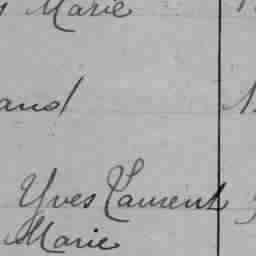 Marie
and
Yves Laurent
Marie